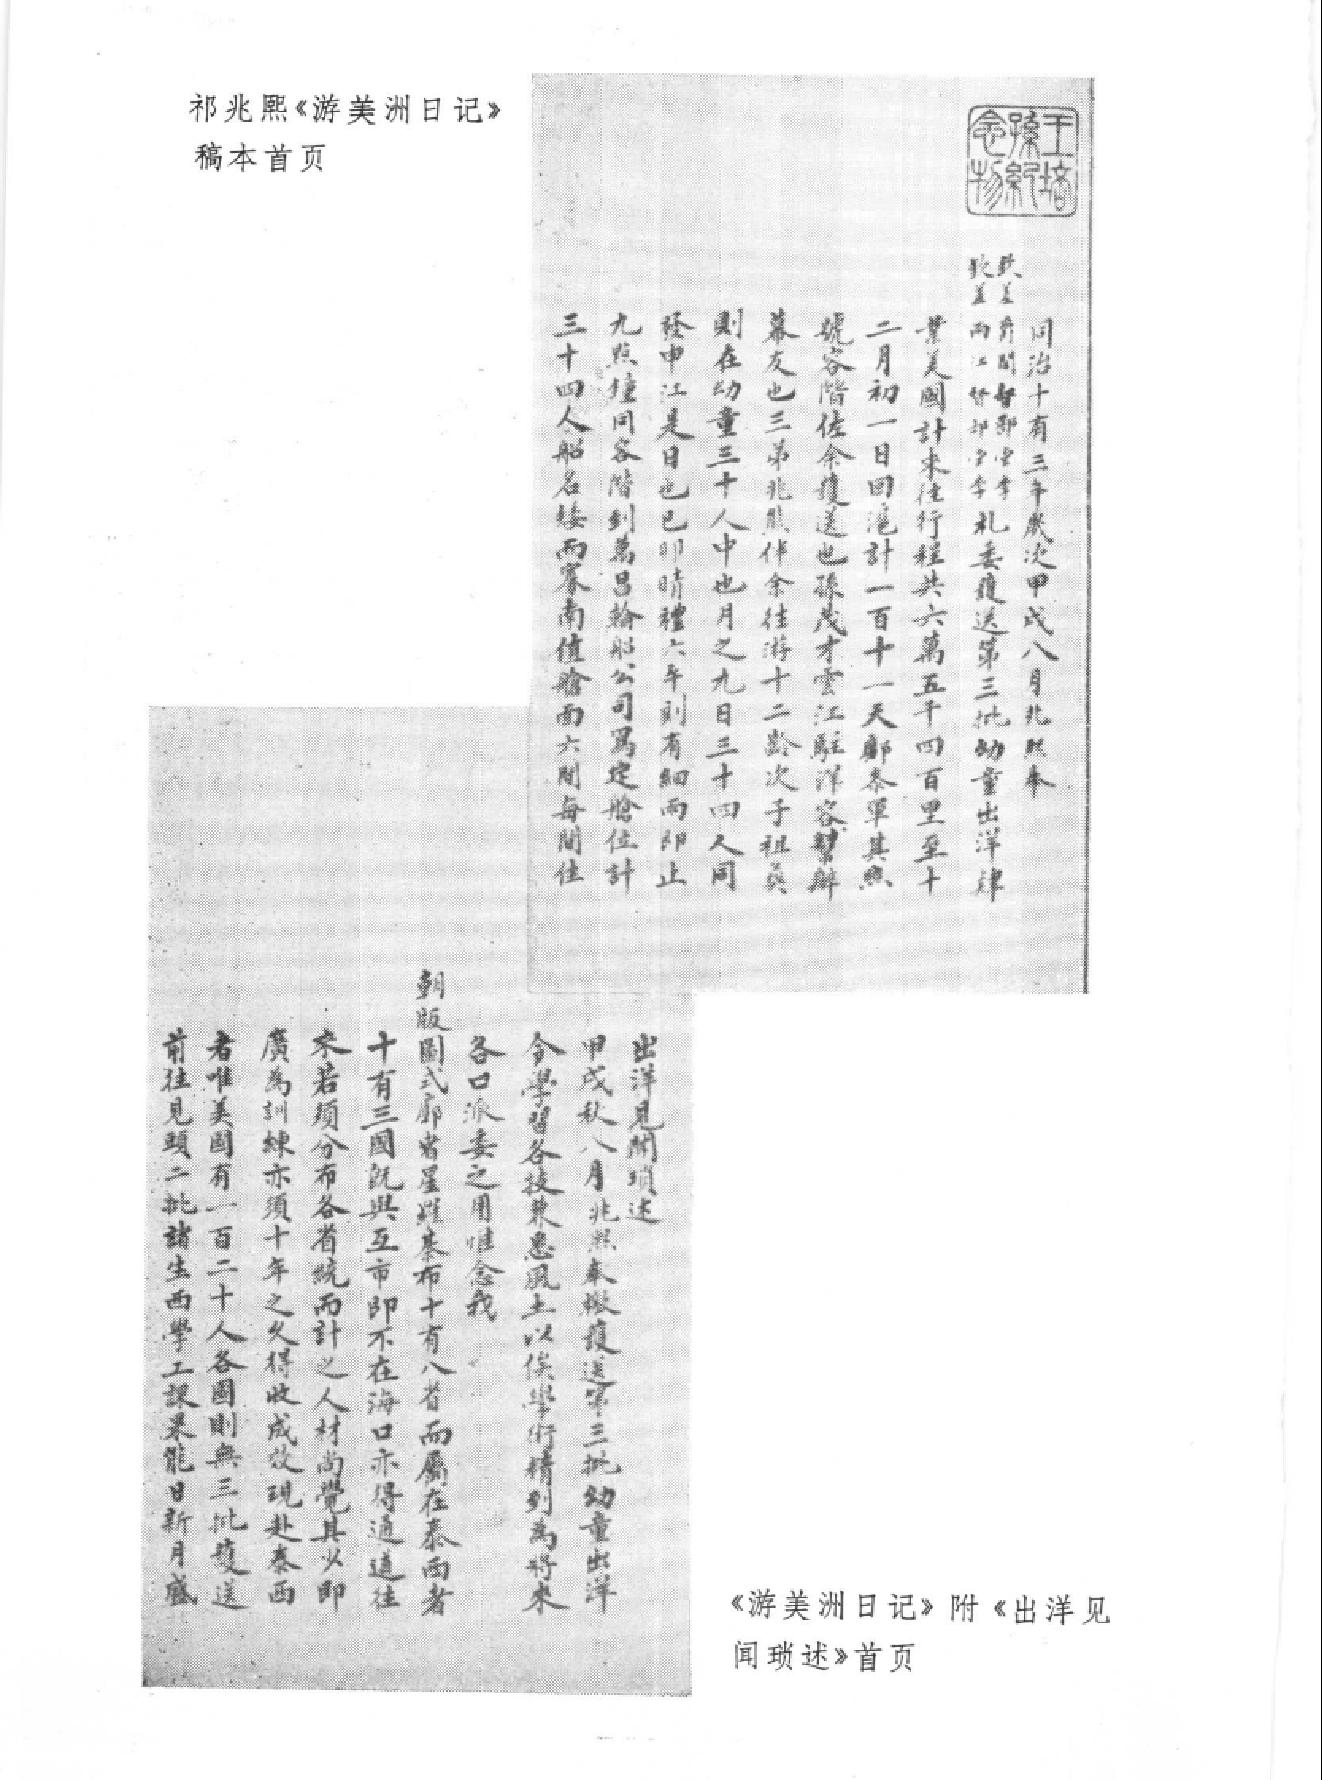 祁兆熙《游美洲日记》
稿本首页
王培
孫紀
念物
同治十有三年歲次甲戌八月兆熙奉
欽差 閣督部堂李
欽差兩江督部堂李札委護送第三批幼童出洋肄
業美國計來往行程共六萬五千四百里至十
二月初一日回滬計一百十一天鄺參軍其照
號容階佐余護送也孫茂才雲江駐洋容幫辦
幕友也三弟兆熊伴余往游十二齡次子祖彝
則在幼童三十人中也月之九日三十四人同
發申江是日也己卯晴禮六午刻有細雨即止
九點鐘同容階到萬昌輪船公司寫定艙位計
三十四人船名矮而寡南值艙面六間每間住
出洋見聞瑣述
甲戌秋八月兆熙奉檄護送第三批幼童出洋
令學習各技兼悉風土以俟學術精到為將來
各口派委之用惟念我
朝版圖式廓省星羅棊布十有八省而屬在泰西者
十有三國既與互市即不在海口亦得通道往
來若須分布各省統而計之人材尚覺其少即
廣為訓練亦須十年之久得收成效現赴泰西
者唯美國有一百二十人各國則無三批護送
前往見頭二批諸生西學工課果能日新月盛
《游美洲日记》附《出洋见
闻琐述》首页